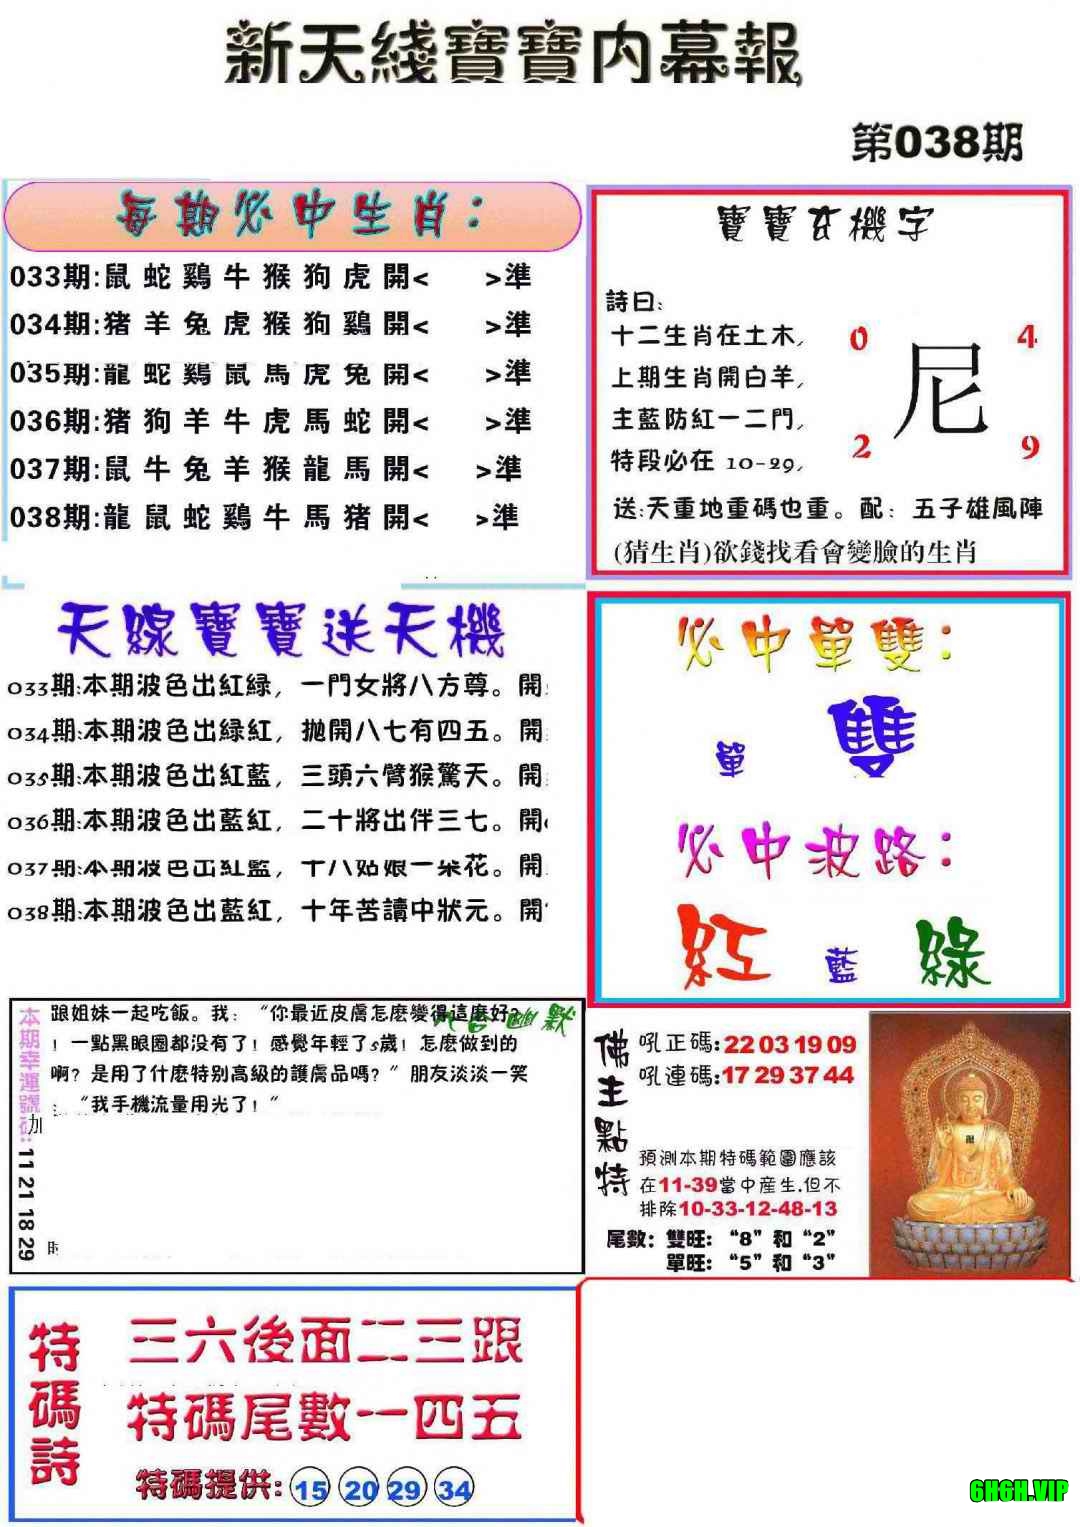 新天綫寶寶内幕報
第038期
每期必中生肖：
033期:鼠 蛇 鷄 牛 猴 狗 虎 開< >準
034期:猪 羊 兔 虎 猴 狗 鷄 開< >準
035期:龍 蛇 鷄 鼠 馬 虎 兔 開< >準
036期:猪 狗 羊 牛 虎 馬 蛇 開< >準
037期:鼠 牛 兔 羊 猴 龍 馬 開< >準
038期:龍 鼠 蛇 鷄 牛 馬 猪 開< >準
寶寶玄機字
詩曰:
十二生肖在土木,
上期生肖開白羊,
主藍防紅一二門,
特段必在 10-29,
0 4
尼
2 9
送:天重地重碼也重。配：五子雄風陣
(猜生肖)欲錢找看會變臉的生肖
天線寶寶送天機
033期:本期波色出紅緑，一門女將八方尊。開
034期:本期波色出緑紅，抛開八七有四五。開
035期:本期波色出紅藍，三頭六臂猴驚天。開
036期:本期波色出藍紅，二十將出伴三七。開
037期:本期波色出紅藍，十八姑娘一朵花。開
038期:本期波色出藍紅，十年苦讀中狀元。開
必中單雙：
單 雙
必中波路：
紅 藍 綠
本期幸運號碼: 11 21 18 29
幽默
跟姐妹一起吃飯。我：“你最近皮膚怎麽變得這麽好?
！一點黑眼圈都没有了！感覺年輕了5歲！怎麽做到的
啊？是用了什麽特别高級的護膚品嗎？”朋友淡淡一笑
：“我手機流量用光了！“
加
佛主點特
吼正碼:22 03 19 09
吼連碼:17 29 37 44
預測本期特碼範圍應該
在11-39當中産生.但不
排除10-33-12-48-13
尾數：雙旺：“8”和“2”
單旺：“5”和“3”
特碼詩
三六後面二三跟
特碼尾數一四五
特碼提供: 15 20 29 34
6H6H.VIP